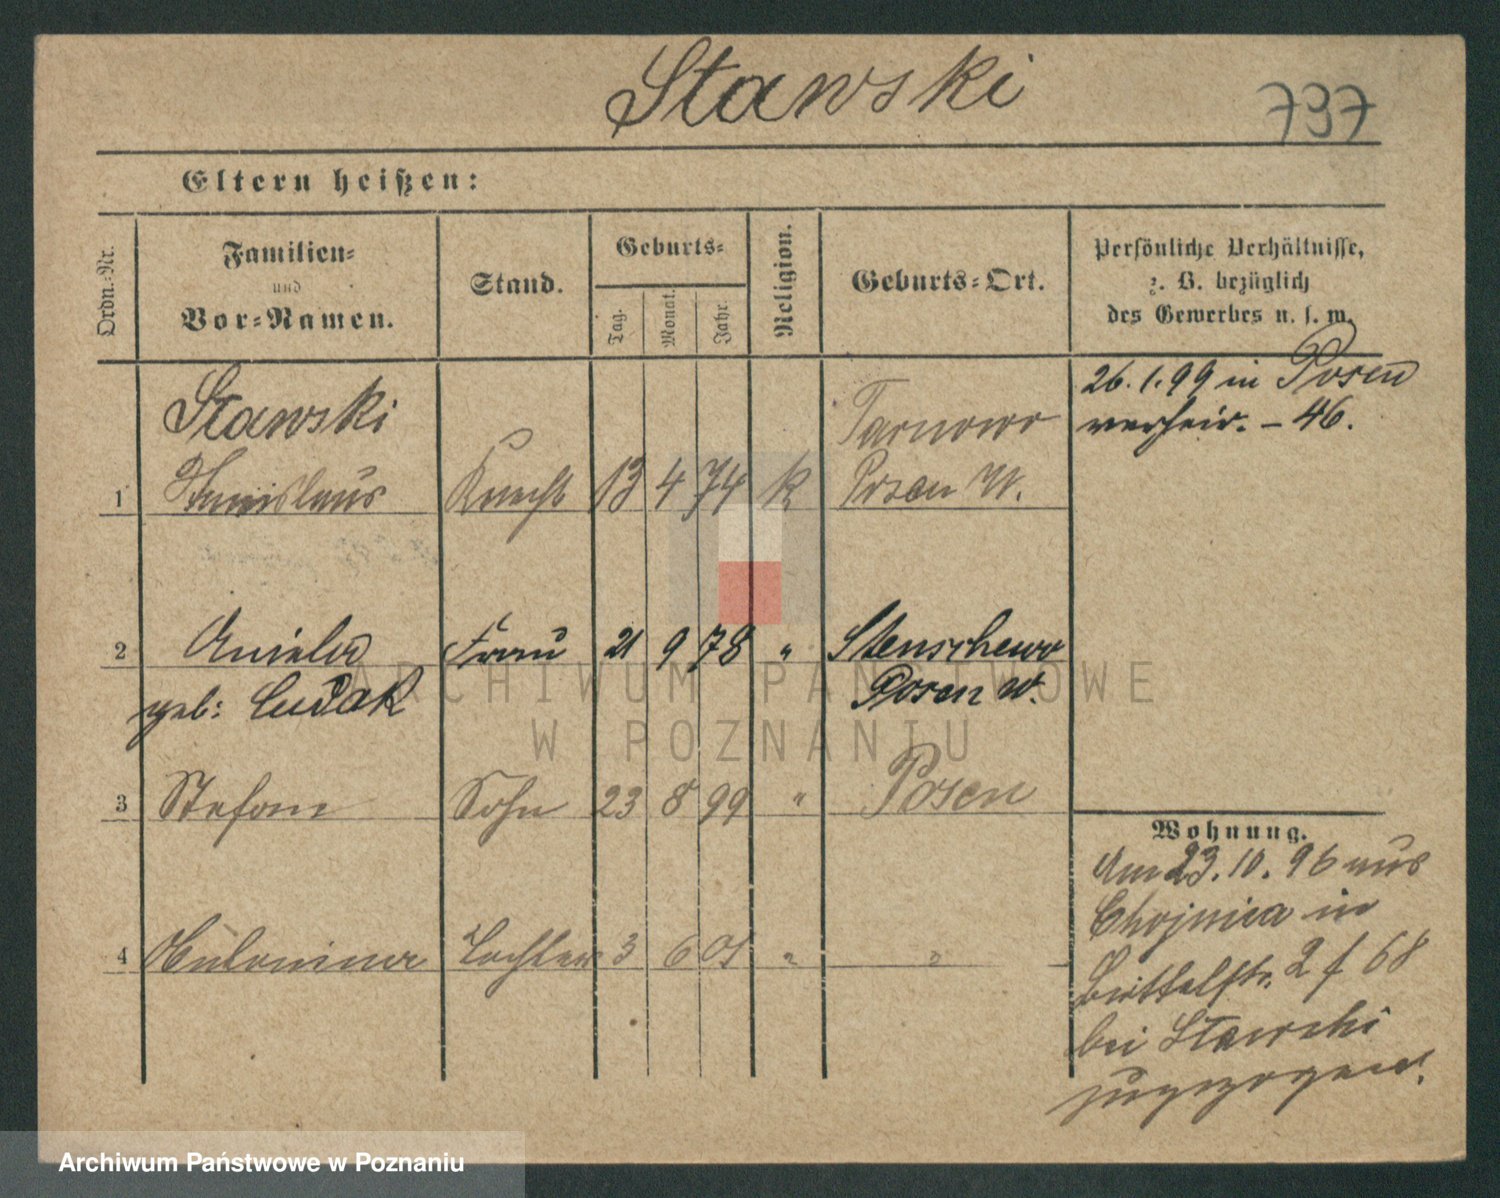 Stawski
737
Eltern heißen:
Ordn.-Nr.
Familien-
und
Vor-Namen.
Stand.
Geburts-
Tag.
Monat.
Jahr.
Religion.
Geburts-Ort.
Persönliche Verhältnisse,
z. B. bezüglich
des Gewerbes u. s. w.
26. 1. 99 in Posen
verheir. - 46.
Stawski
Tarnowo
1 Stanislaus Knecht 13 4 74 k Posen W.
2 Aniela Frau 21 9 78 " Stenschewo
geb: Ludak Posen W.
3 Stefan Sohn 23 8 99 " Posen
4 Tochter 3 6 01 " "
Wohnung.
Am 23. 10. 96 aus
Chojnica in
2 f 68
bei Stawski
zugezogen.
ARCHIWUM PAŃSTWOWE
W POZNANIU
Archiwum Państwowe w Poznaniu